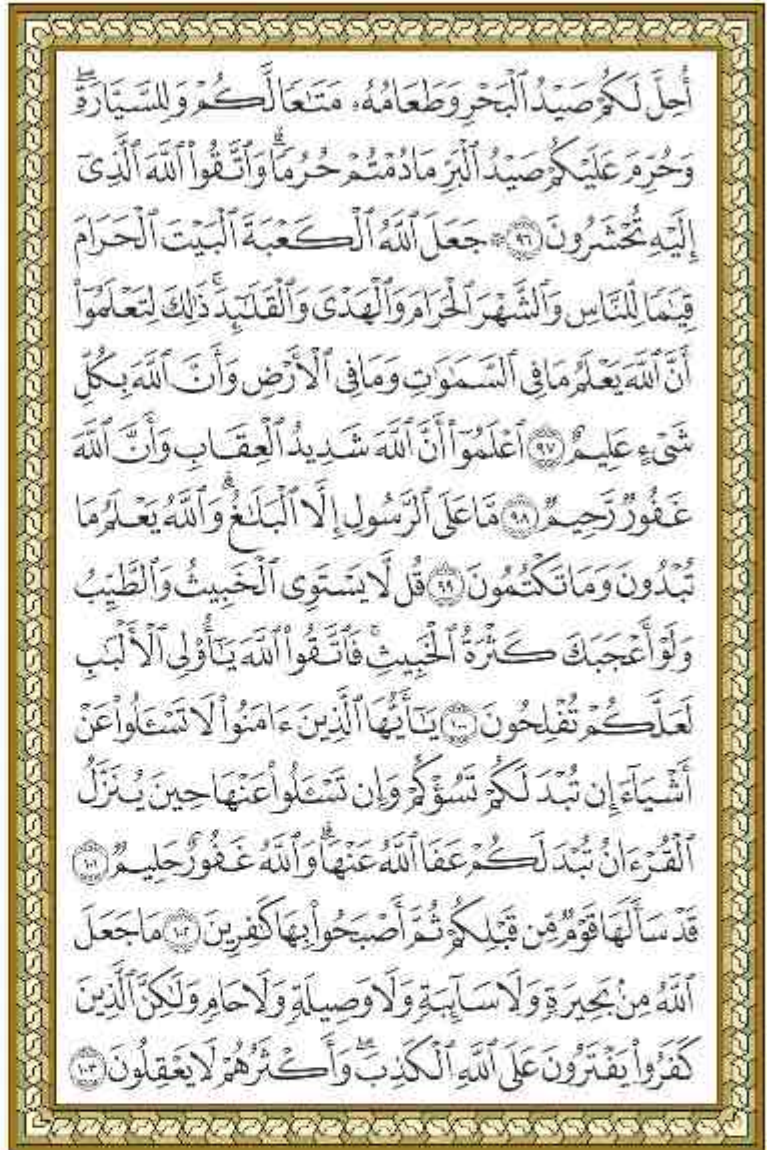 أُحِلَّ لَكُمْ صَيْدُ ٱلْبَحْرِ وَطَعَامُهُۥ مَتَـٰعًا لَّكُمْ وَلِلسَّيَّارَةِۖ
وَحُرِّمَ عَلَيْكُمْ صَيْدُ ٱلْبَرِّ مَا دُمْتُمْ حُرُمًاۗ وَٱتَّقُوا۟ ٱللَّهَ ٱلَّذِىٓ
إِلَيْهِ تُحْشَرُونَ ٩٦ ۞ جَعَلَ ٱللَّهُ ٱلْكَعْبَةَ ٱلْبَيْتَ ٱلْحَرَامَ
قِيَـٰمًا لِّلنَّاسِ وَٱلشَّهْرَ ٱلْحَرَامَ وَٱلْهَدْىَ وَٱلْقَلَـٰٓئِدَۚ ذَٰلِكَ لِتَعْلَمُوٓا۟
أَنَّ ٱللَّهَ يَعْلَمُ مَا فِى ٱلسَّمَـٰوَٰتِ وَمَا فِى ٱلْأَرْضِ وَأَنَّ ٱللَّهَ بِكُلِّ
شَىْءٍ عَلِيمٌ ٩٧ ٱعْلَمُوٓا۟ أَنَّ ٱللَّهَ شَدِيدُ ٱلْعِقَابِ وَأَنَّ ٱللَّهَ
غَفُورٌ رَّحِيمٌ ٩٨ مَّا عَلَى ٱلرَّسُولِ إِلَّا ٱلْبَلَـٰغُۗ وَٱللَّهُ يَعْلَمُ مَا
تُبْدُونَ وَمَا تَكْتُمُونَ ٩٩ قُل لَّا يَسْتَوِى ٱلْخَبِيثُ وَٱلطَّيِّبُ
وَلَوْ أَعْجَبَكَ كَثْرَةُ ٱلْخَبِيثِۚ فَٱتَّقُوا۟ ٱللَّهَ يَـٰٓأُو۟لِى ٱلْأَلْبَـٰبِ
لَعَلَّكُمْ تُفْلِحُونَ ١٠٠ يَـٰٓأَيُّهَا ٱلَّذِينَ ءَامَنُوا۟ لَا تَسْـَٔلُوا۟ عَنْ
أَشْيَآءَ إِن تُبْدَ لَكُمْ تَسُؤْكُمْ وَإِن تَسْـَٔلُوا۟ عَنْهَا حِينَ يُنَزَّلُ
ٱلْقُرْءَانُ تُبْدَ لَكُمْ عَفَا ٱللَّهُ عَنْهَاۗ وَٱللَّهُ غَفُورٌ حَلِيمٌ ١٠١
قَدْ سَأَلَهَا قَوْمٌ مِّن قَبْلِكُمْ ثُمَّ أَصْبَحُوا۟ بِهَا كَـٰفِرِينَ ١٠٢ مَا جَعَلَ
ٱللَّهُ مِنۢ بَحِيرَةٍ وَلَا سَآئِبَةٍ وَلَا وَصِيلَةٍ وَلَا حَامٍ وَلَـٰكِنَّ ٱلَّذِينَ
كَفَرُوا۟ يَفْتَرُونَ عَلَى ٱللَّهِ ٱلْكَذِبَۖ وَأَكْثَرُهُمْ لَا يَعْقِلُونَ ١٠٣